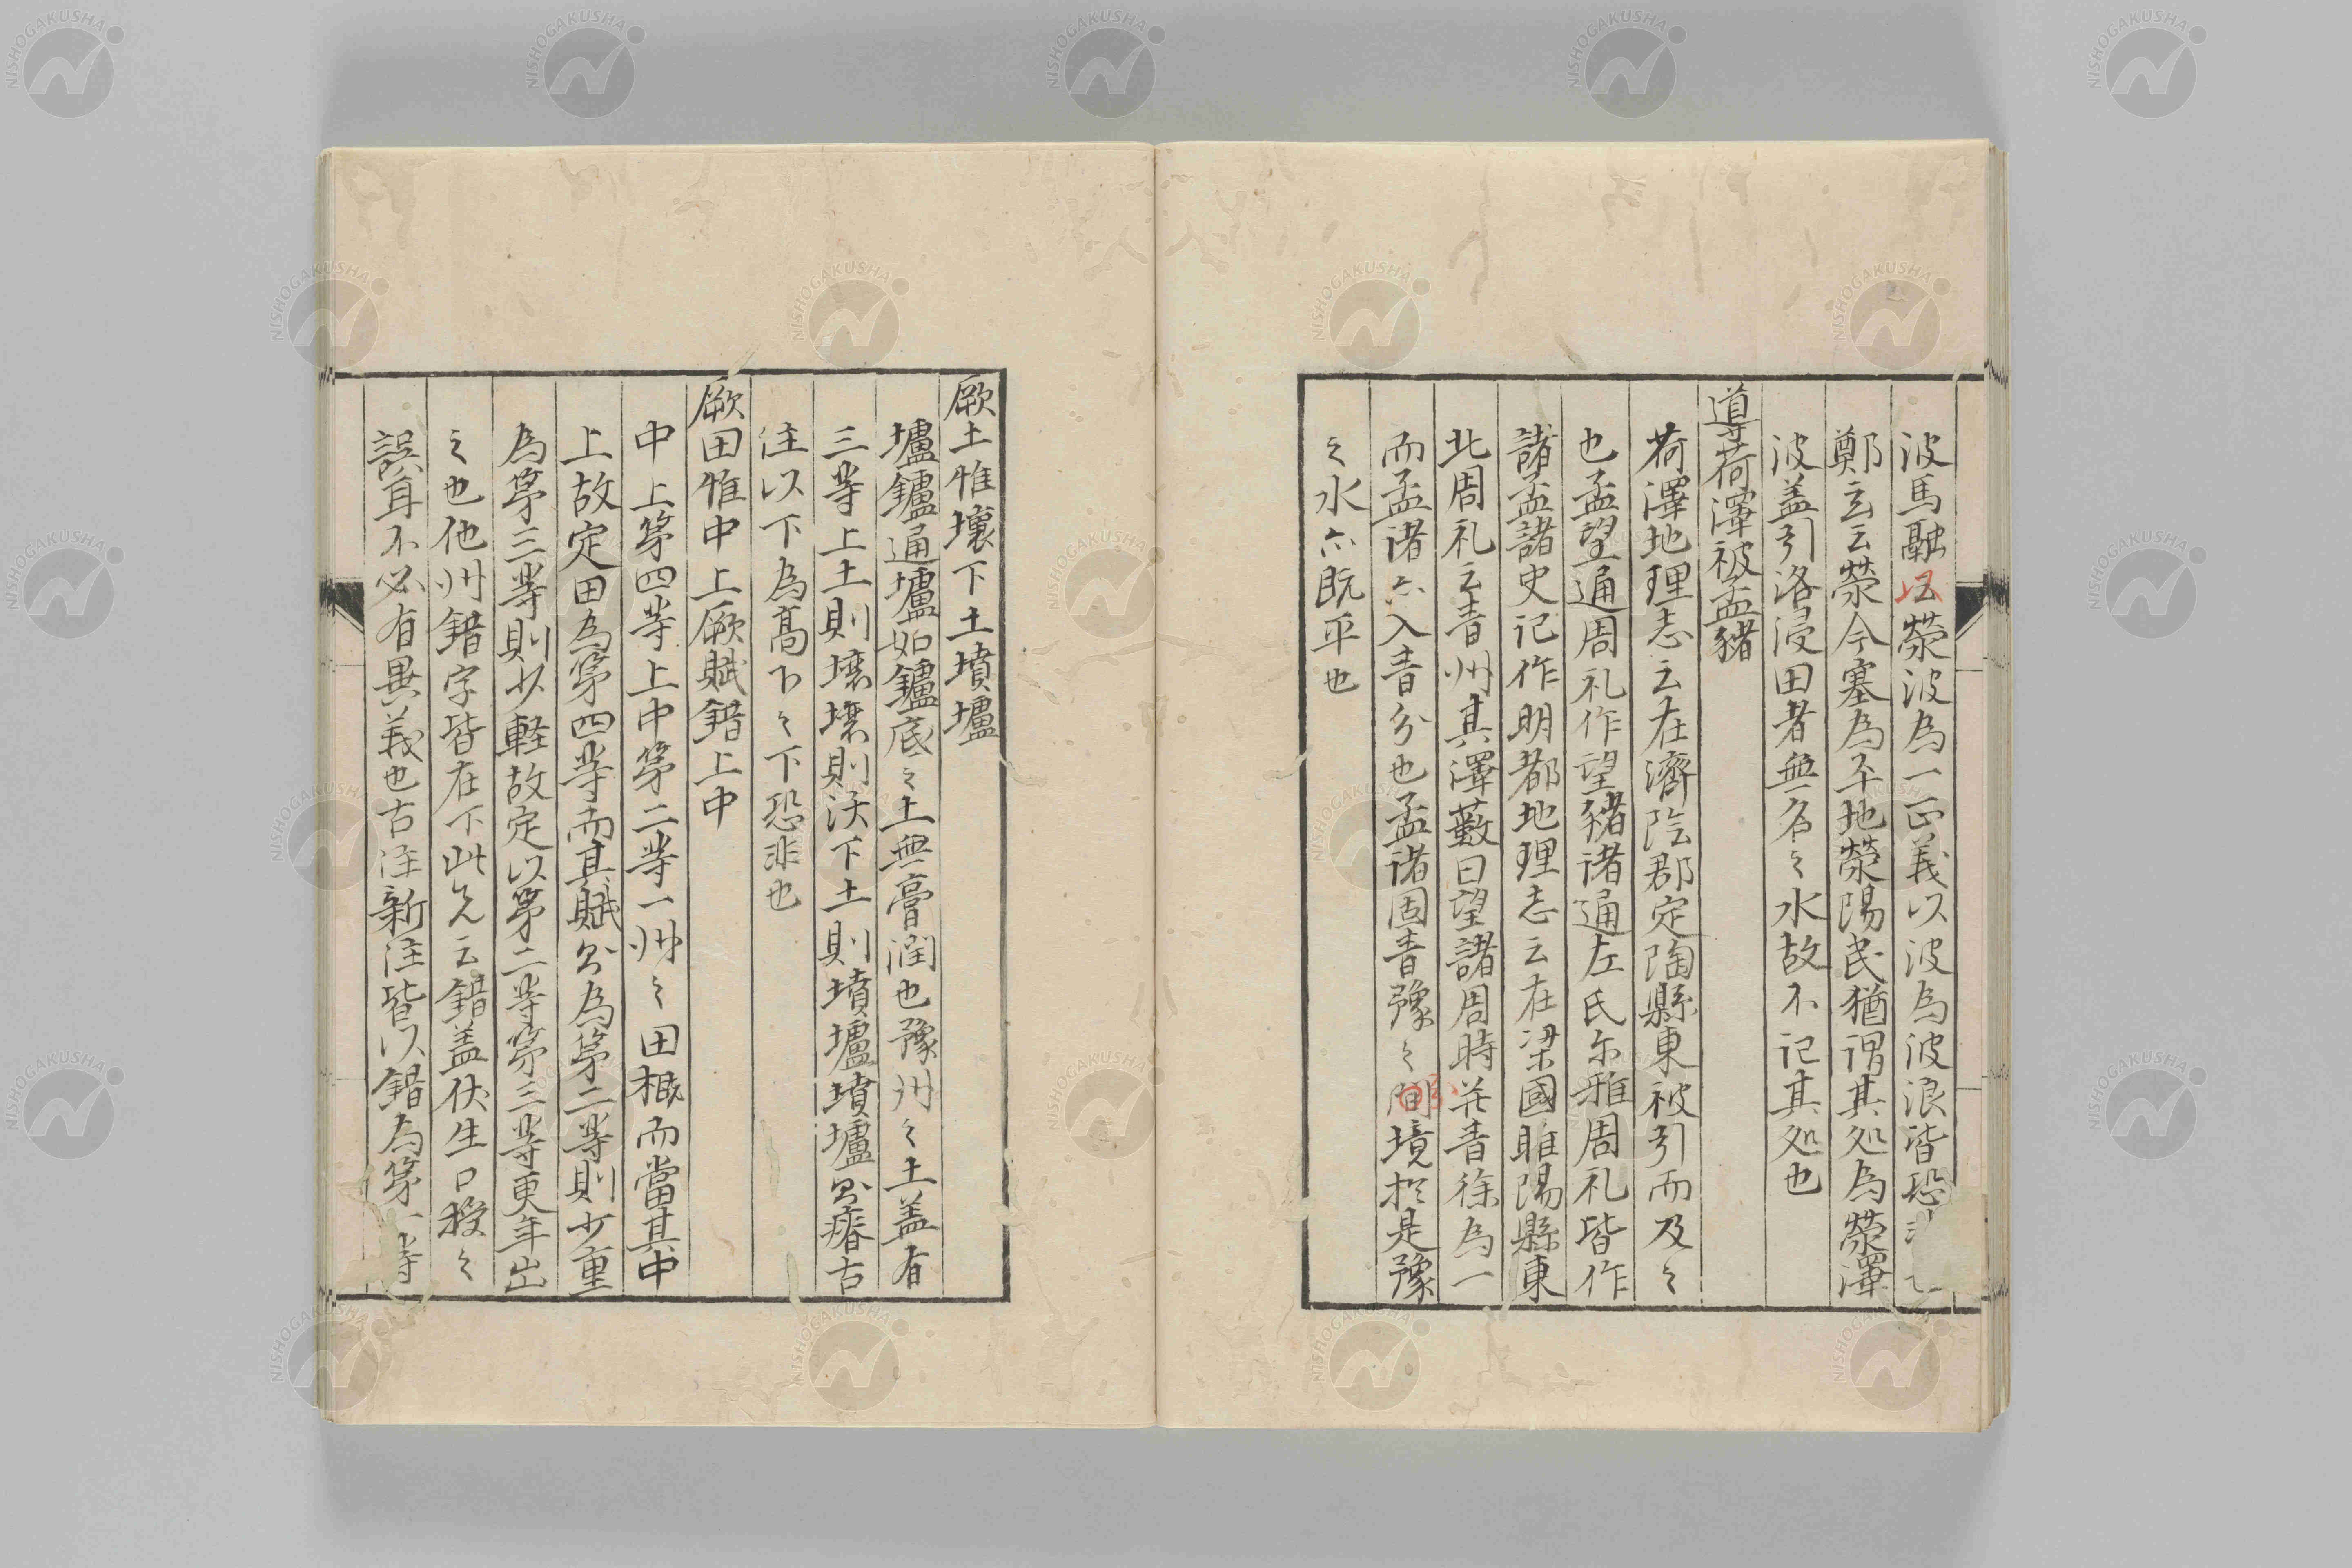 波馬融以滎波為一正義以波為波浪皆恐
鄭玄云滎今塞為平地滎陽民猶謂其処為滎澤
波盖引洛浸田者無名之水故不記其処也
導荷澤被孟豬
荷澤地理志云在濟陰郡定陶縣東被引而及之
也孟望通周礼作望豬諸通左氏尓雅周礼皆作
諸孟諸史记作明都地理志云在梁國睢陽縣東
北周礼云青州其澤藪曰望諸周時并青徐為一
而孟诸亦入青分也孟诸固青豫之間境於是豫
之水亦既平也
厥土惟壤下土墳壚
壚鑪通壚如鑪底之土無膏潤也豫州之土盖有
三等上土則壤壤則沃下土則墳壚墳壚則瘠古
注以下為高下之下恐非也
厥田惟中上厥賦錯上中
中上第四等上中第二等一州之田概而當其中
上故定田為第四等而其賦則為第二等則少重
為第三等則少軽故定以第二等第三等更年出
之也他州錯字皆在下此先云錯盖伏生口授之
誤耳不必有異義也古注新注皆以錯為第一等